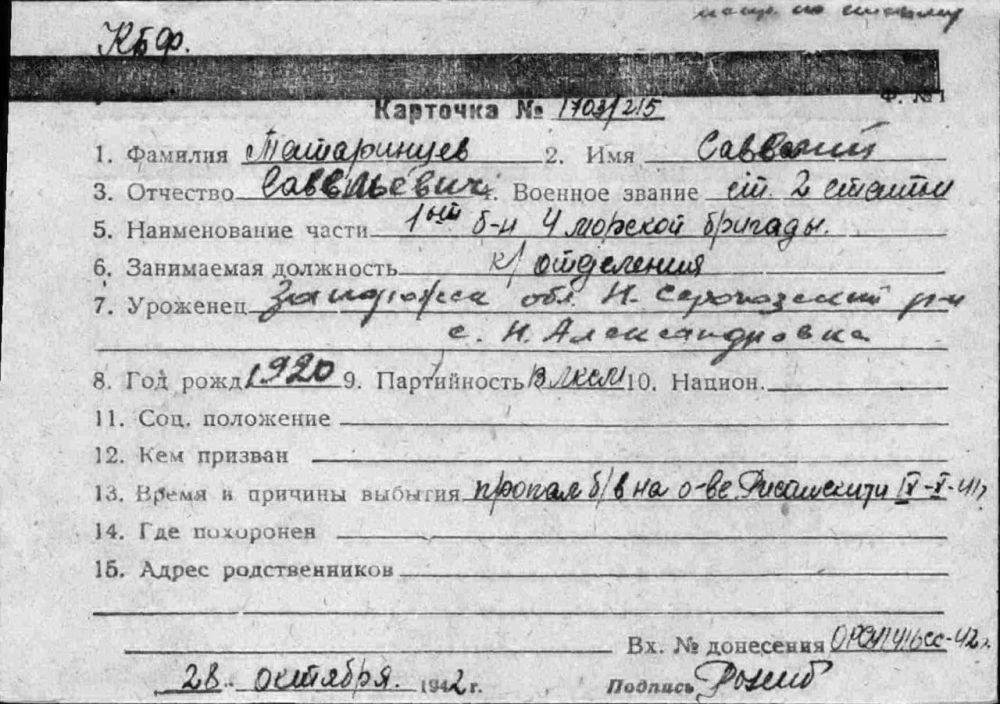 КБФ.
Ф. №1
Карточка № 1703/215
1. Фамилия Татаринцев 2. Имя Савватий
3. Отчество Саввельевич 4. Военное звание ст. 2 статьи
5. Наименование части 1ый б-н 4 морской бригады.
6. Занимаемая должность к/отделения
7. Уроженец обл. Н. р-н
с. Н. Александровка
8. Год рожд. 1920 9. Партийность ВЛКСМ 10. Национ.
11. Соц. положение
12. Кем призван
13. Время и причины выбытия пропал б/в на о-ве IX-X-41г
14. Где похоронен
15. Адрес родственников
Вх. № донесения
28 октября. 1942 г. Подпись